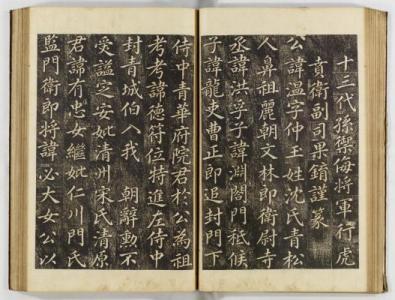 十三代孫禦侮將軍行虎
賁衛副司果銷謹篆
公諱溫字仲玉姓沈氏青松
人鼻祖麗朝文林郎衛尉寺
丞諱洪孚子諱淵閤門祗候
子諱龍吏曹正郎追封門下
侍中青華府院君於公為祖
考考諱德符位特進左侍中
封青城伯入我 朝辭勳不
受謚定安妣清州宋氏清原
君諱有忠女繼妣仁川門氏
監門衛郎將諱必大女公以